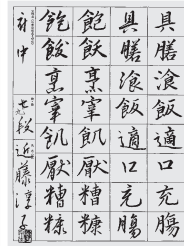 具膳飡飯適口充腸
具膳飡飯適口充腸
飽飫烹宰飢厭糟糠
飽飫烹宰飢厭糟糠
近藤淳子